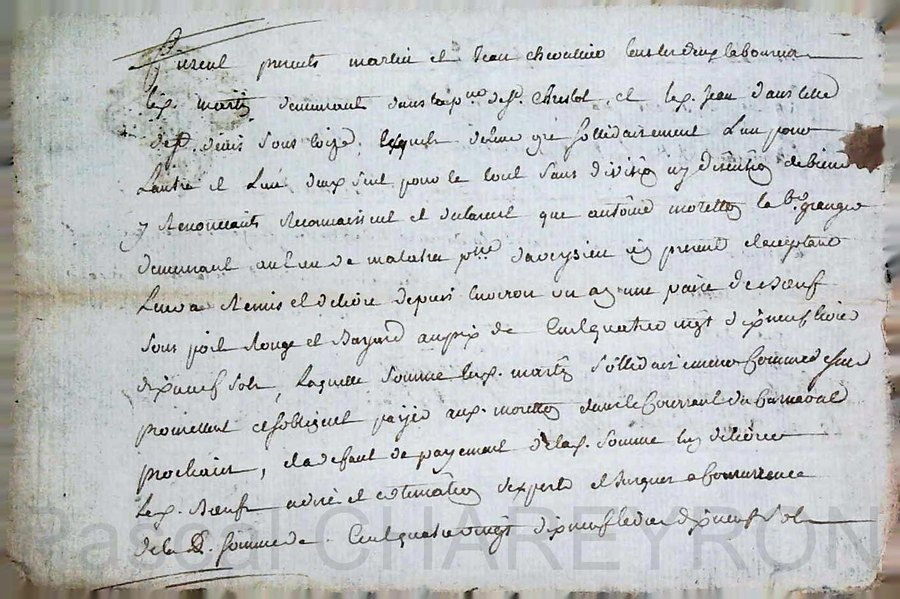 furent presents martin et Jean chevallier tous les deux laboureur
led. martin demeurant dans la par. de st. Christol, et led. Jean dans celle
de st. genis sous lesquels de leur gré sollidairement l'un pour
l'autre et l'un deux seul pour le tout sans division ny de biens
y Renonceants Reconnaissent et declarent que antoine moretton la granger
demeurant au lieu de paroisse present et acceptant
Leur a Remis et delivré depuis environ un an une paire de Boeuf
sous poil Rouge et Bayard au prix de Cent quatre vingt dix neuf livres
dix neuf sols, laquelle somme lesd. martin sollidairement comme dessus
promettent et sobligent payer aud. moretton dans le Courrant du Carnaval
prochain, et a defaut de payement de lad. somme luy delivrer
lesd. Boeufs estimation dexperts et jusques a Concurrence
de la d. somme de Cent quatre vingt dix neuf livres dix neuf sols
Pascal CHAREYRON